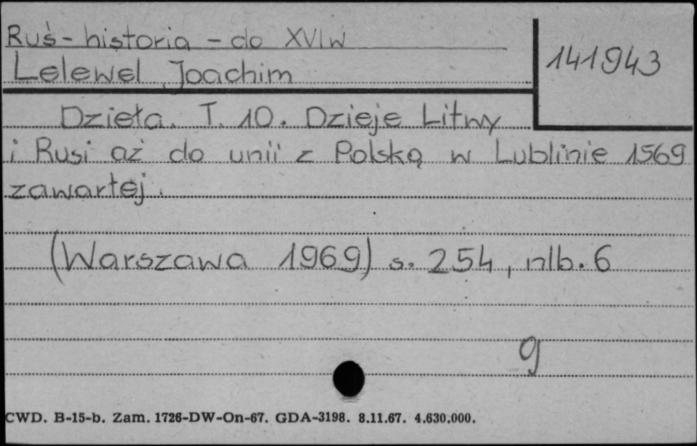 Ruś - historia - do XVI w
141943
Lelewel Joachim
Dzieła. T. 10. Dzieje Litwy
i Rusi aż do unii z Polską w Lublinie 1569
zawartej.
(Warszawa 1969) s. 254, nlb. 6
g
CWD. B-15-b. Zam. 1726-DW-On-67. GDA-3198. 8.11.67. 4.630.000.